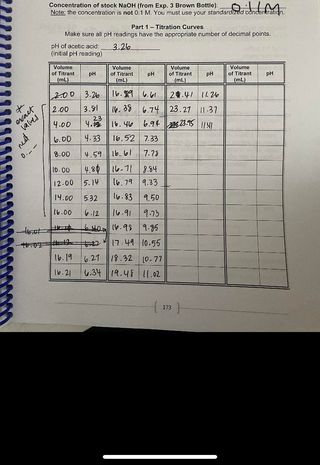 Concentration of stock NaOH (from Exp. 3 Brown Bottle): 0.11M
Note: the concentration is not 0.1 M. You must use your standardized concentration.
Part 1 – Titration Curves
Make sure all pH readings have the appropriate number of decimal points.
pH of acetic acid: 3.26
(initial pH reading)
Volume of Titrant (mL) pH Volume of Titrant (mL) pH Volume of Titrant (mL) pH Volume of Titrant (mL) pH
3.26 6.61 11.26
2.00 3.81 16.38 6.74 23.27 11.37
4.00 16.46 11.41
6.00 4.33 16.52 7.33
8.00 4.59 16.61 7.78
10.00 16.71 8.84
12.00 5.14 16.79 9.33
14.00 5.32 16.83 9.50
16.00 6.12 16.91 9.73
16.01 16.93 9.85
17.49 10.55
16.19 6.27 18.32 10.77
16.21 6.34 19.48 11.02
exact
not
173